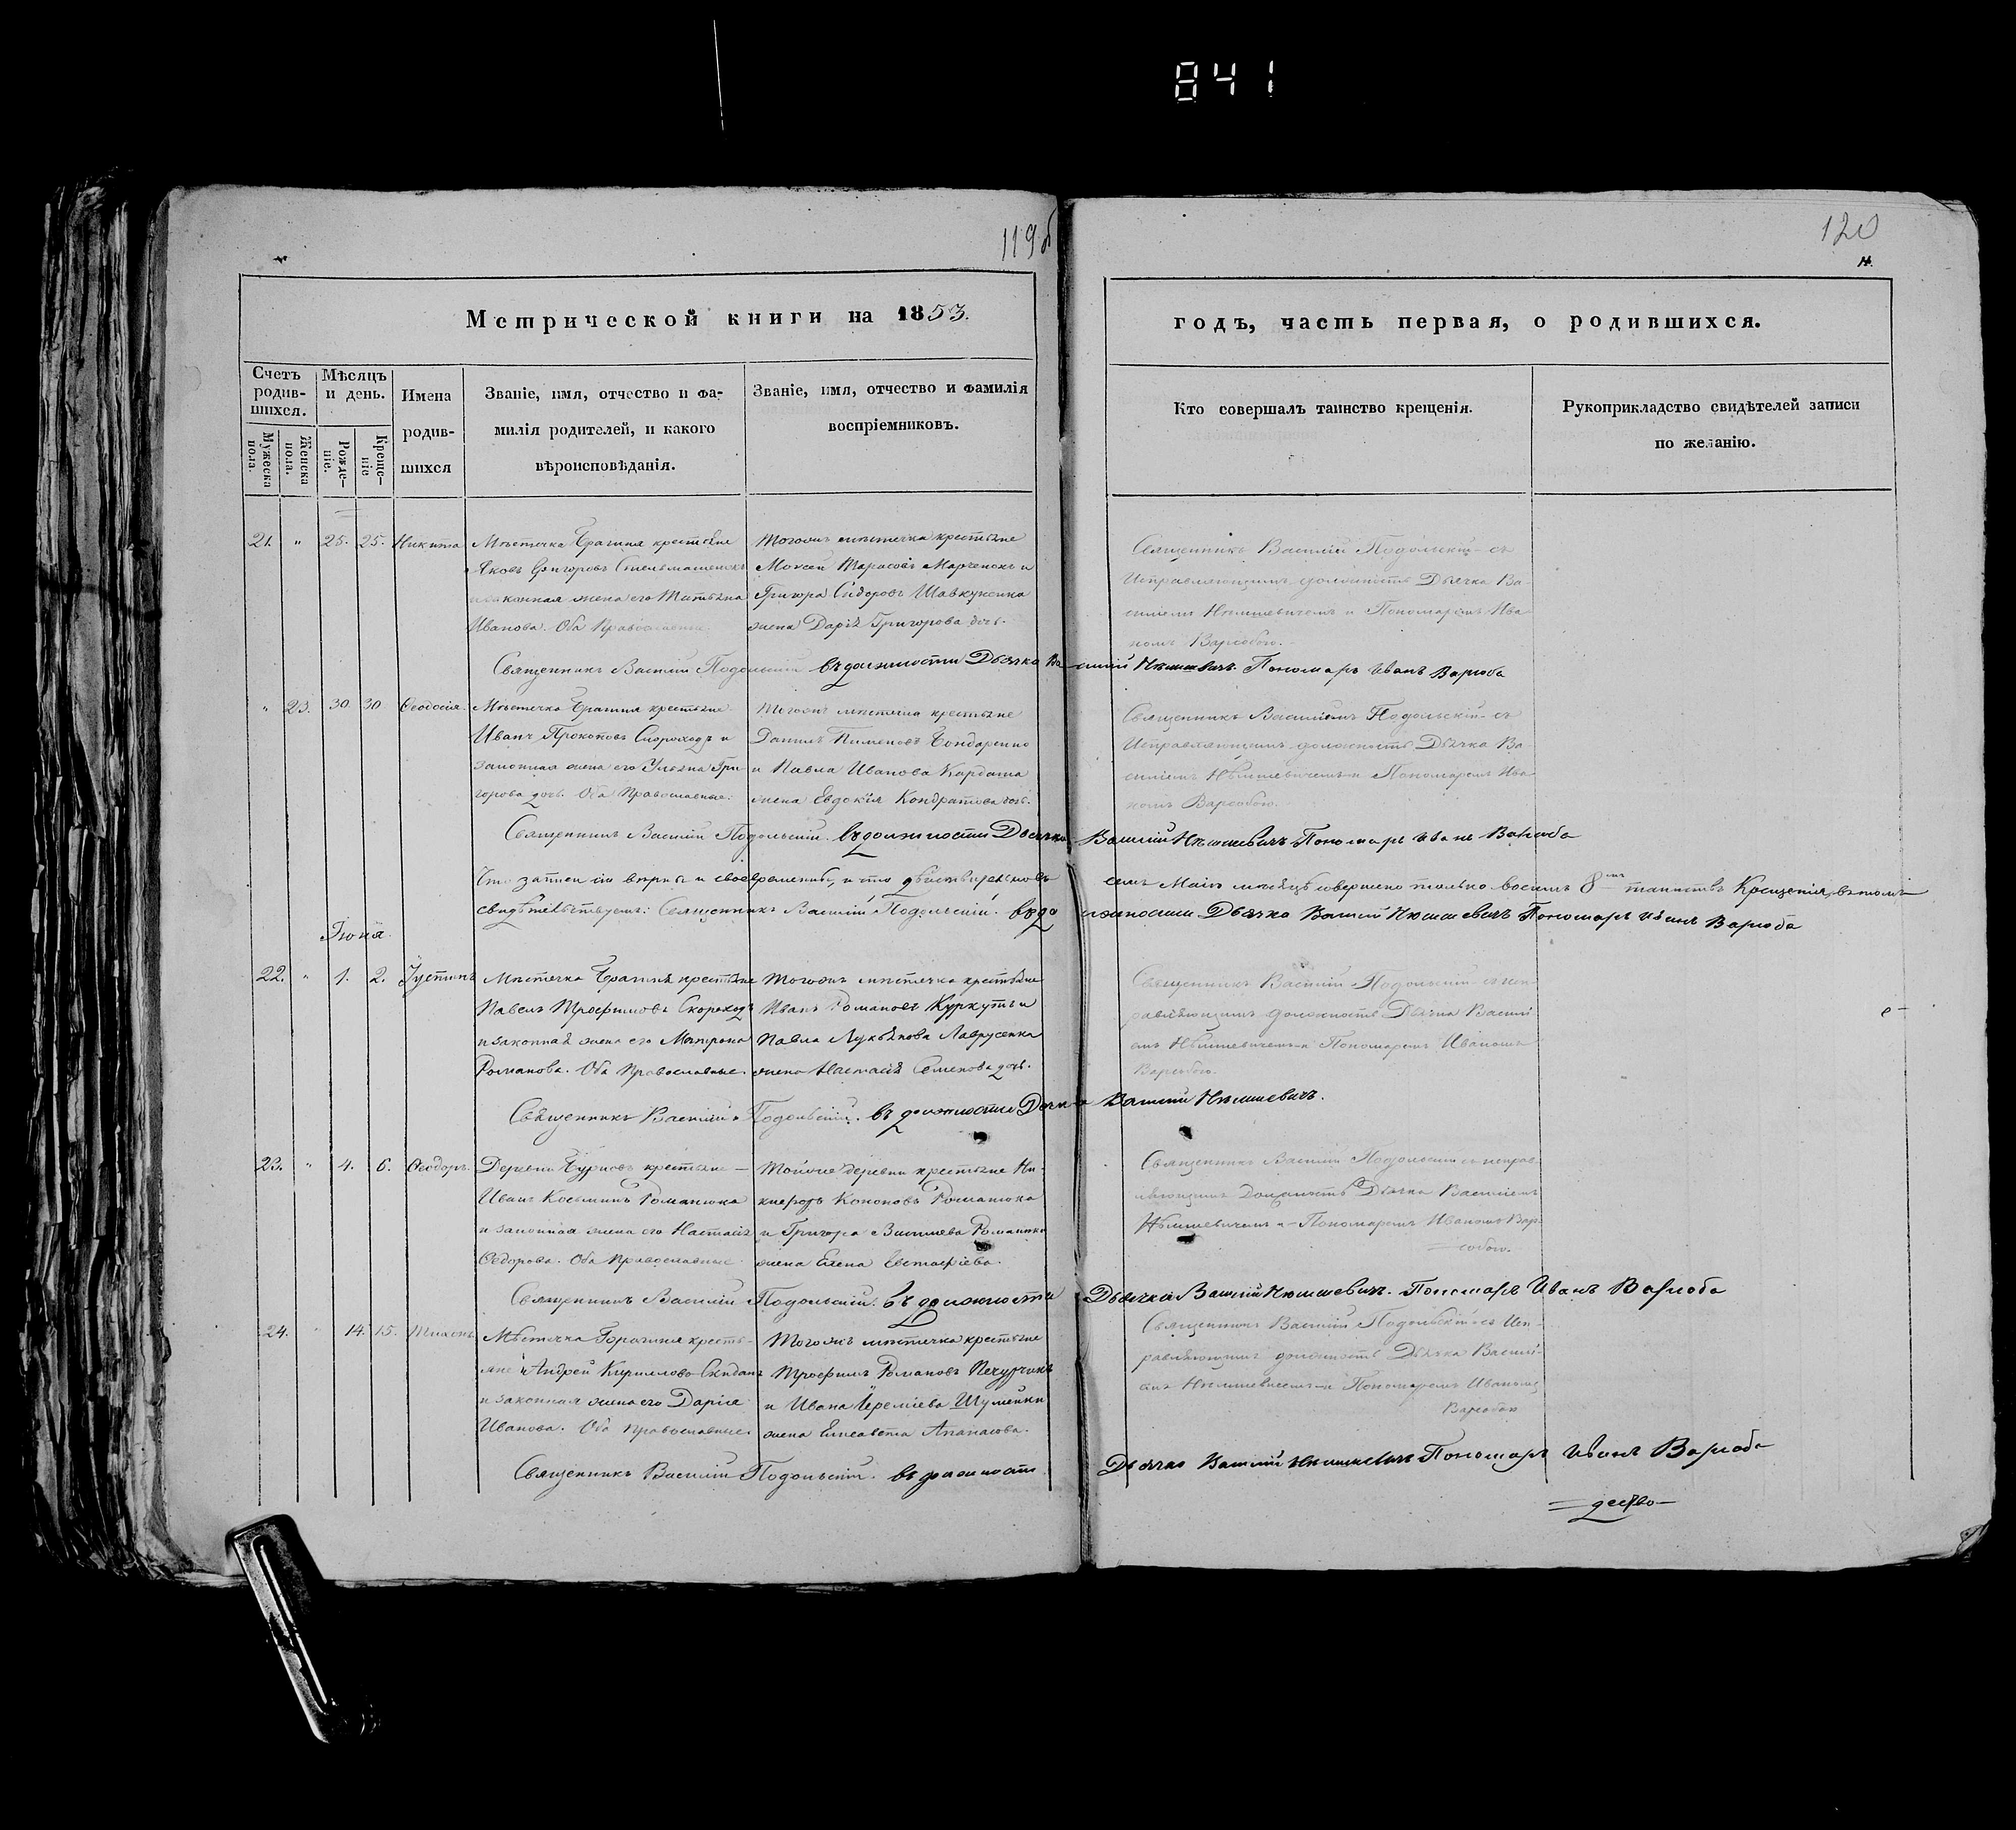 841
119 об
120
Метрической книги на 1853.
годъ, часть первая, о родившихся.
Счетъ родившихся.
Мужеска пола.
Женска пола.
Мѣсяцъ и день.
Рожде-ніе.
Креще-ніе
Имена родив-шихся
Званіе, имя, отчество и фа-
милія родителей, и какого
вѣроисповѣданія.
Званіе, имя, отчество и фамилія
воспріемниковъ.
Кто совершалъ таинство крещенія.
Рукоприкладство свидѣтелей записи
по желанію.
21. " 25. 25. Никита
Мѣстечка Брагиня крестьяне
Яковъ Григоровъ
законная жена его Татьяна
Иванова. Оба Православные.
Тогожъ мѣстечка крестьяне
Моисей Тарасовъ Марченокъ и
Григора Сидоровъ Шавкуненка
жена Дарія Григорова дочь.
Священникъ Василій Подольскій съ
Исправляющимъ должность Дьячка Ва-
силіемъ Нѣмшевичемъ и Пономаремъ Ива
номъ Варсобою.
Священникъ Василій Подольскій въ должности Дьячка Василій Нѣмшевичъ. Пономарь Иванъ Варсоба
" 23. 30 30 Ѳеодосія.
Мѣстечка Брагиня крестьяне
Иванъ Прокоповъ Скороходъ и
законная жена его Ульяна Гри-
горова дочь. Оба Православные.
Тогожъ мѣстечка крестьяне
Данилъ Пименовъ Бондаренко
и Павла Иванова Кардаша
жена Евдокія Кондратова дочь.
Священникъ Василіемъ Подольскій съ
Исправляющимъ должность Дьячка Ва-
силіемъ Нѣмшевичемъ и Пономаремъ Ива
номъ Варсобою.
Священникъ Василій Подольскій. въ должности Дьячка Василій Нѣмшевичъ Пономарь Иванъ Варсоба
Что записи сіи вѣрны и своевременны, и что дѣйствительно въ семъ Маіи мѣсяцѣ совершено только восемь 8 таинствъ Крещенія, въ томъ
свидѣтельствуемъ: Священникъ Василій Подольскій. въ должности Дьячка Василій Нѣмшевичъ Пономарь Иванъ Варсоба
Іюня
22. " 1. 2. Іустинъ
Мѣстечка Брагиня крестьяне
Павелъ Трофимовъ Скороходъ
и законная жена его Матрона
Романова. Оба Православные.
Тогожъ мѣстечка крестьяне
Иванъ Романовъ Куркутъ и
Павла Лукьянова Лаврусенка
жена Настасія Семенова дочь.
Священникъ Василій Подольскій съ исп-
равляющимъ должность Дьячка Василі-
емъ Нѣмшевичемъ и Пономаремъ Иваномъ
Варсобою.
Священникъ Василій Подольскій. въ должности Дьячка Василій Нѣмшевичъ.
23. " 4. 6. Ѳеодоръ.
Деревни крестьяне —
Иванъ Косьминъ Романюка
и законная жена его Настасія
Ѳедорова. Оба Православные
Тойже деревни крестьяне Ни-
кифоръ Кононовъ Романюка
и Григора Василева Романюка
жена Елена Евстафіева.
Священникъ Василій Подольскій съ исправ-
ляющимъ Должность Дьячка Василіемъ
Нѣмшевичемъ и Пономаремъ Иваномъ Вар-
собою.
Священникъ Василій Подольскій. въ должности Дьячка Василій Нѣмшевичъ. Пономарь Иванъ Варсоба
24. " 14. 15. Тихонъ
Мѣстечка Брагиня кресть-
яне Андрей Кирилловъ Скиданъ
и законная жена его Дарія
Иванова. Оба Православные.
Тогожъ мѣстечка крестьяне
Трофимъ Романовъ Печурчикъ
и Ивана Іереміева Шуменки
жена Елисавета Апанасова.
Священникъ Василій Подольскій съ Исп-
равляющимъ должность Дьячка Василі-
емъ Нѣмшевичемъ и Пономаремъ Иваномъ
Варсобою
Священникъ Василій Подольскій. въ должности Дьячка Василій Нѣмшевичъ Пономарь Иванъ Варсоба